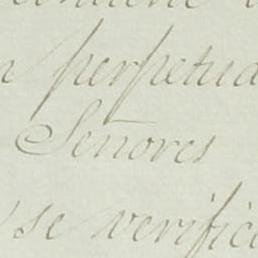 perpetua
Señores
se verific